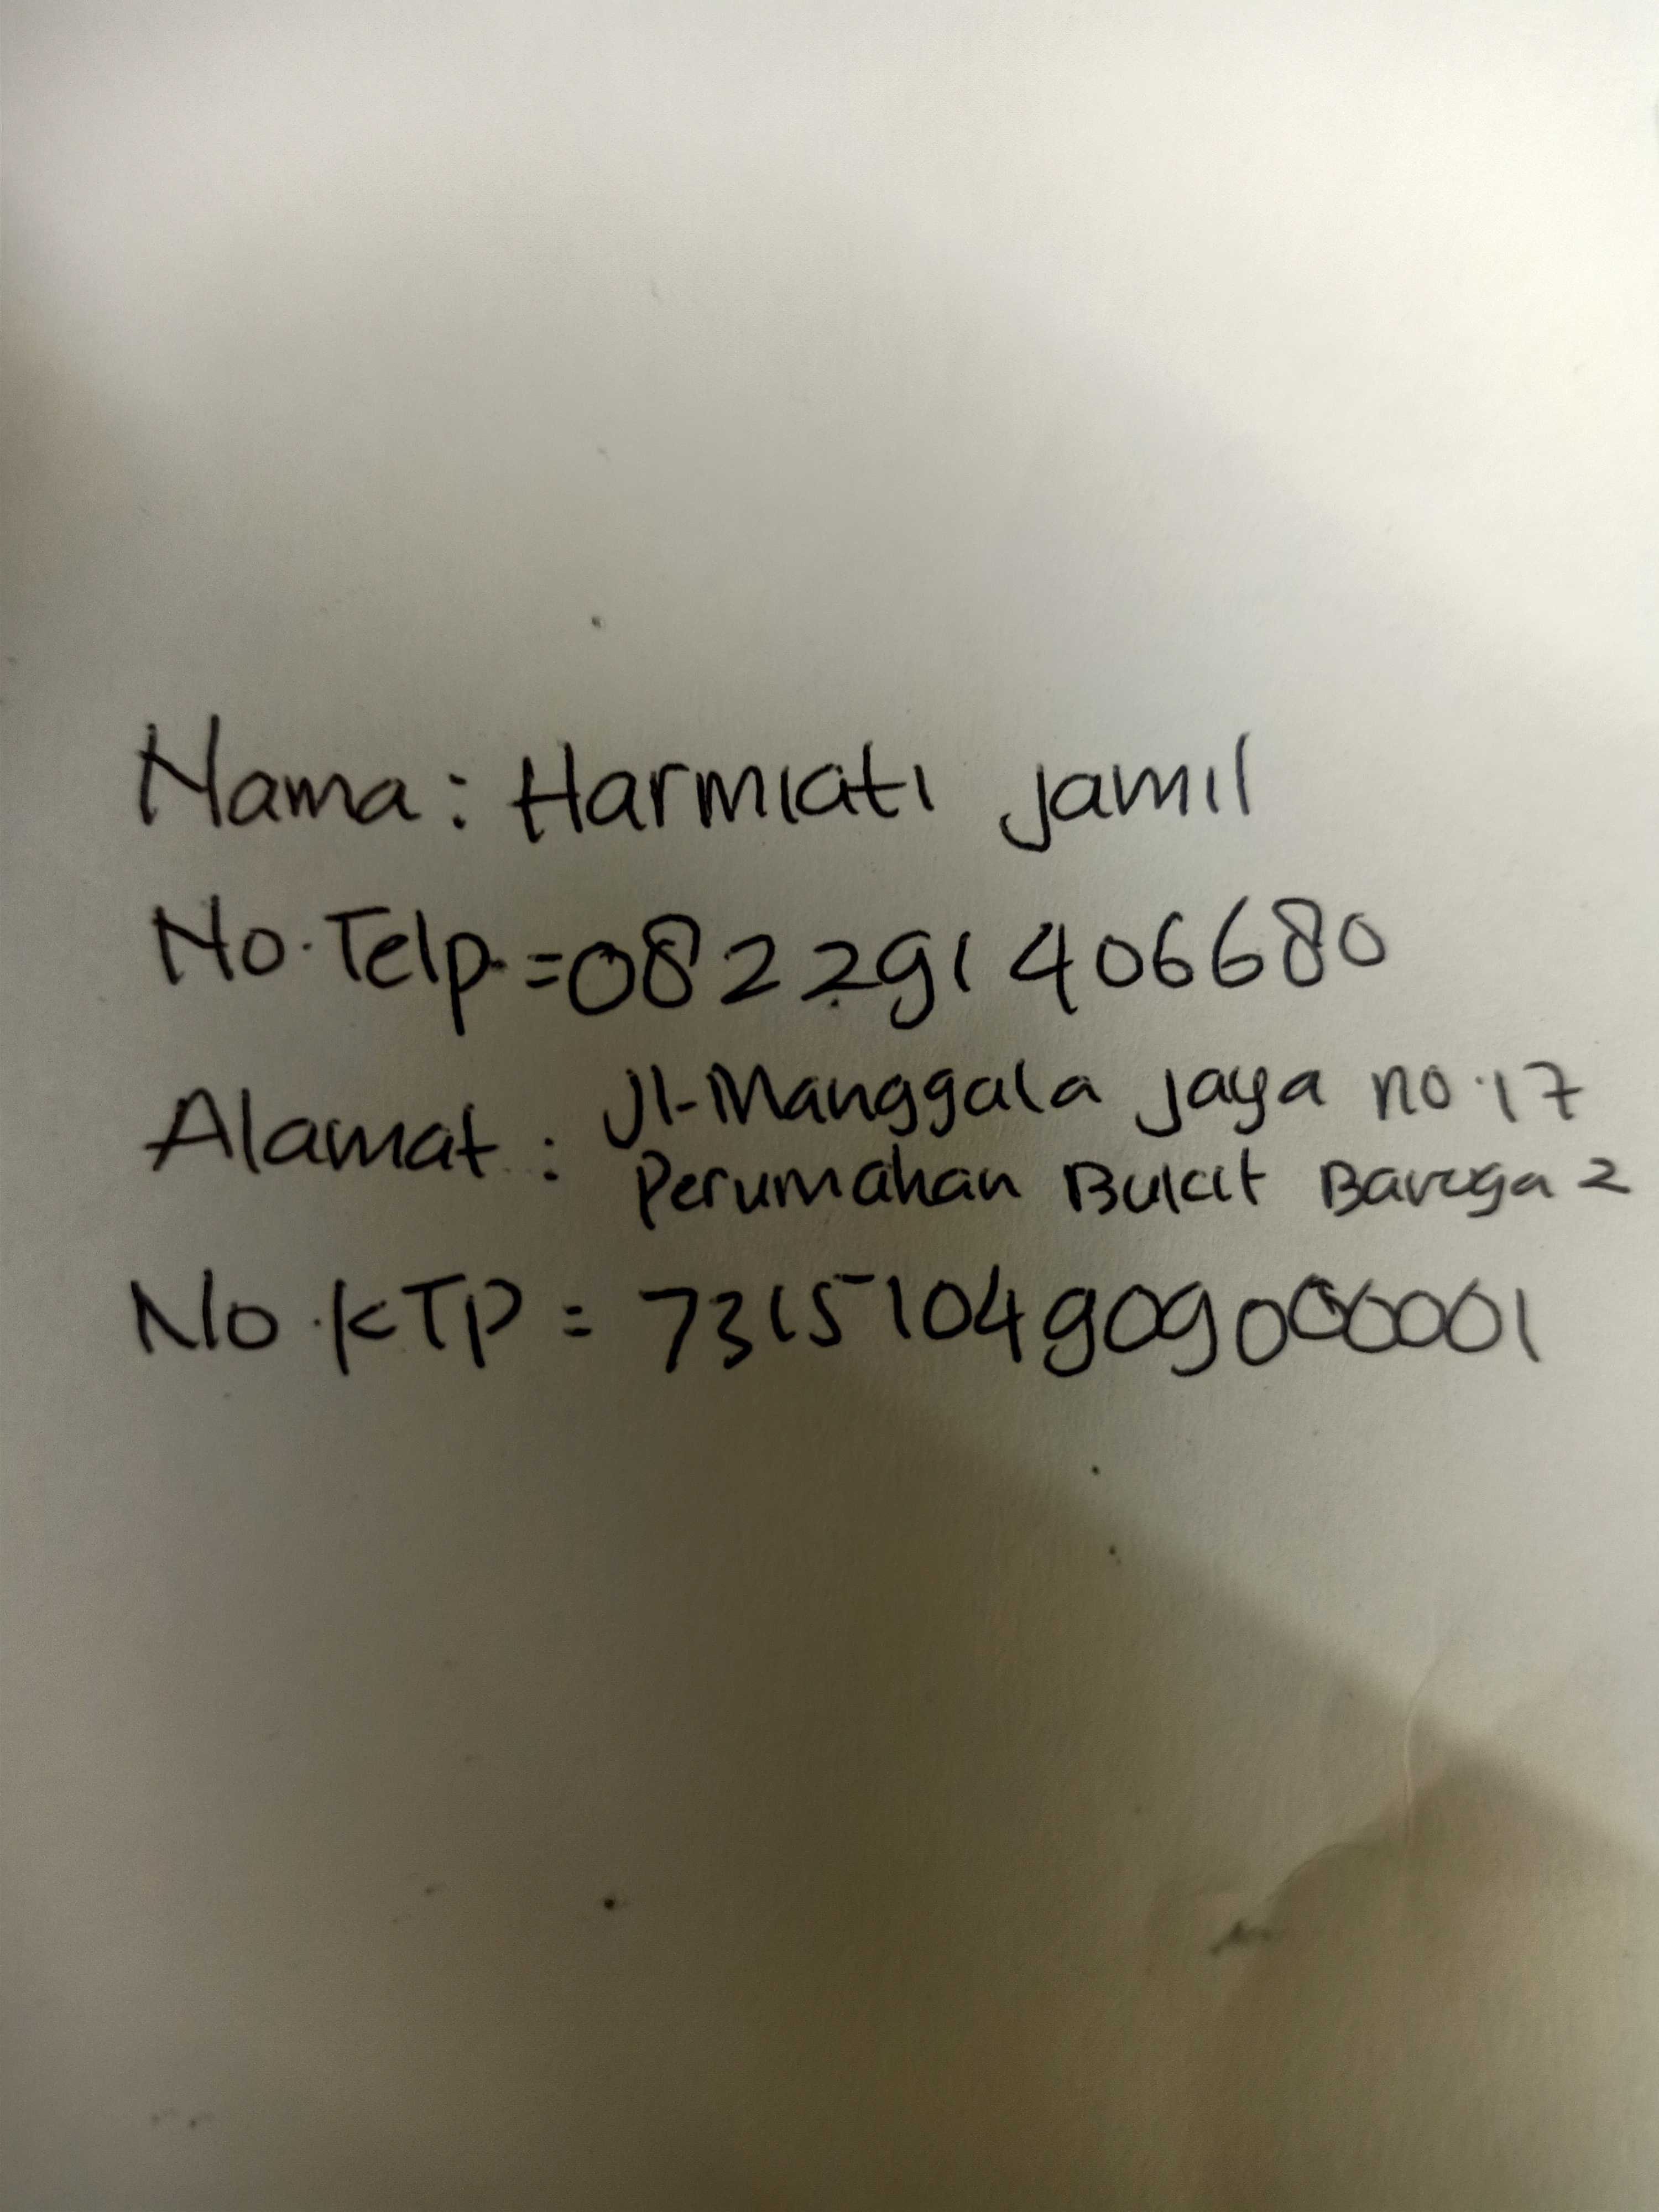 Nama : Harmiati Jamil
No. Telp. = 082291406680
Alamat : Jl. Manggala Jaya no. 17
Perumahan Bukit Baruga 2
No. KTP = 7315104909000001